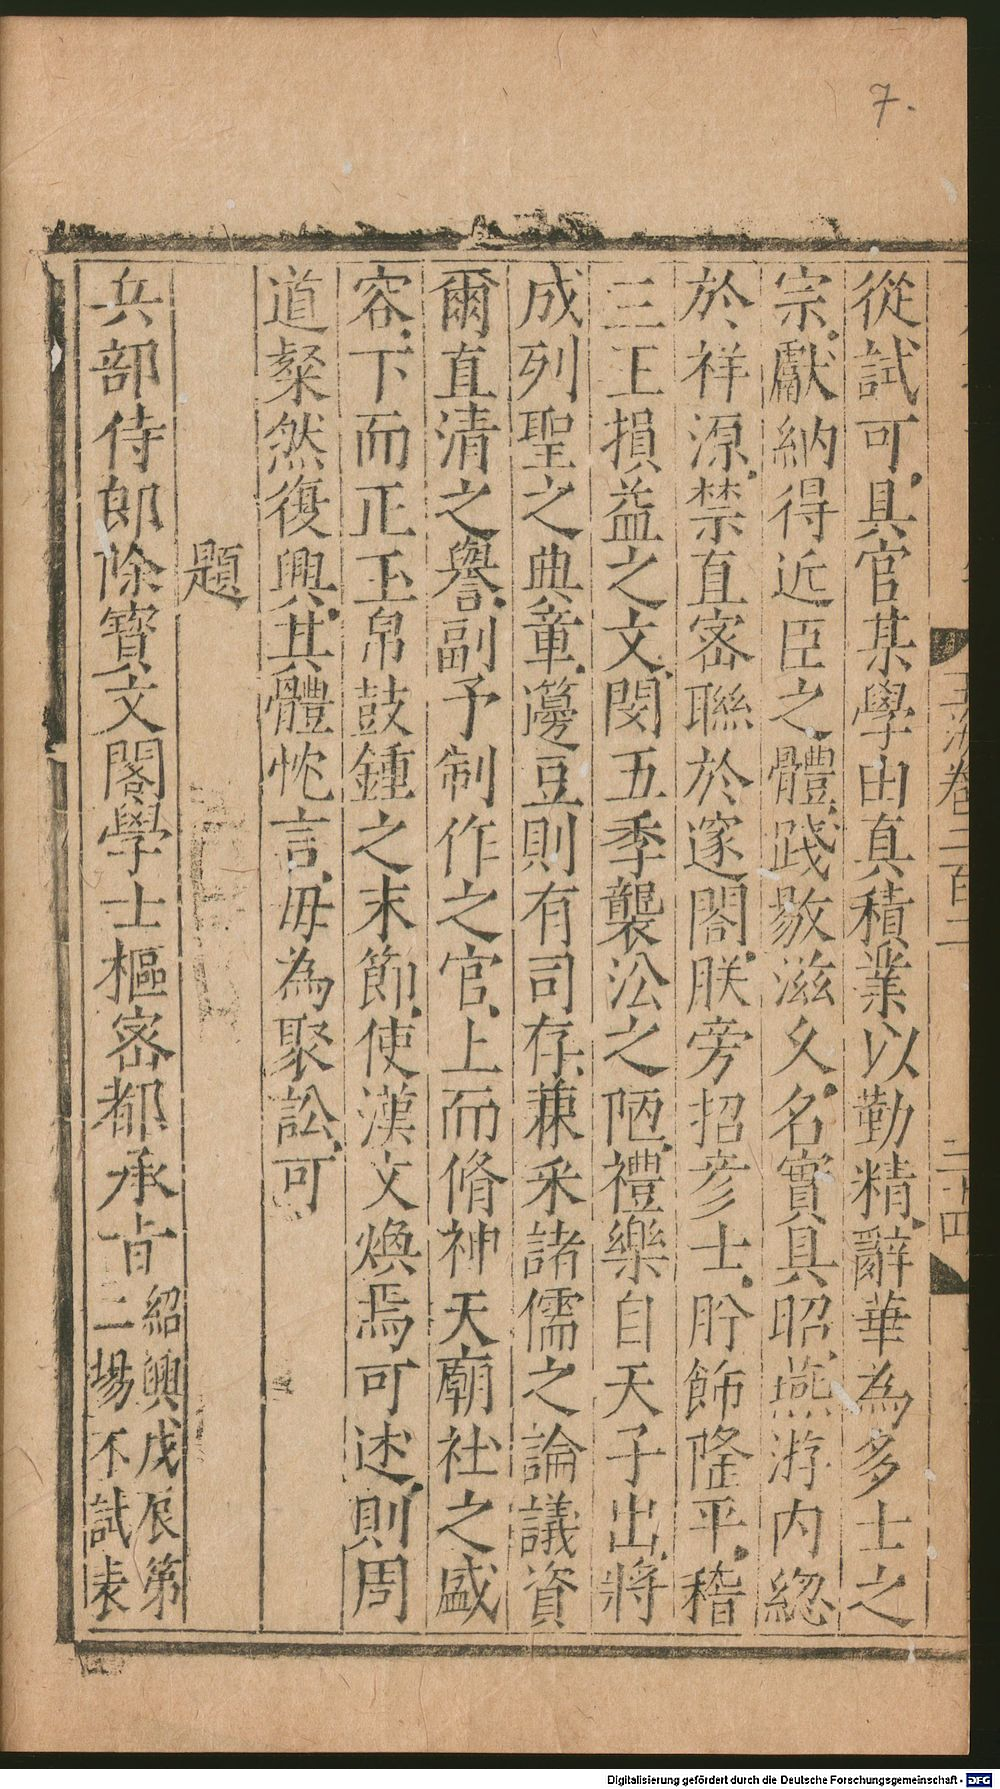 7.
從試可具官某學由真積業以勤精辭華為多士之
宗獻納得近臣之體踐敭滋久名實具昭燕游内總
於祥源禁直密聯於邃閣朕旁招彦士肹飾隆平稽
三王損益之文閔五季襲訟之陋禮樂自天子出將
成列聖之典章籩豆則有司存兼采諸儒之論議資
爾直清之譽副予制作之官上而脩神天廟社之盛
容下而正玉帛鼓鍾之末節使漢文煥焉可述則周
道粲然復興其體忱言毋為聚訟可
題
兵部侍郎除寳文閣學士樞密都承旨
紹興戊辰第
二場不試表
玉海卷二百二
二十四
Digitalisierung gefördert durch die Deutsche Forschungsgemeinschaft - DFG